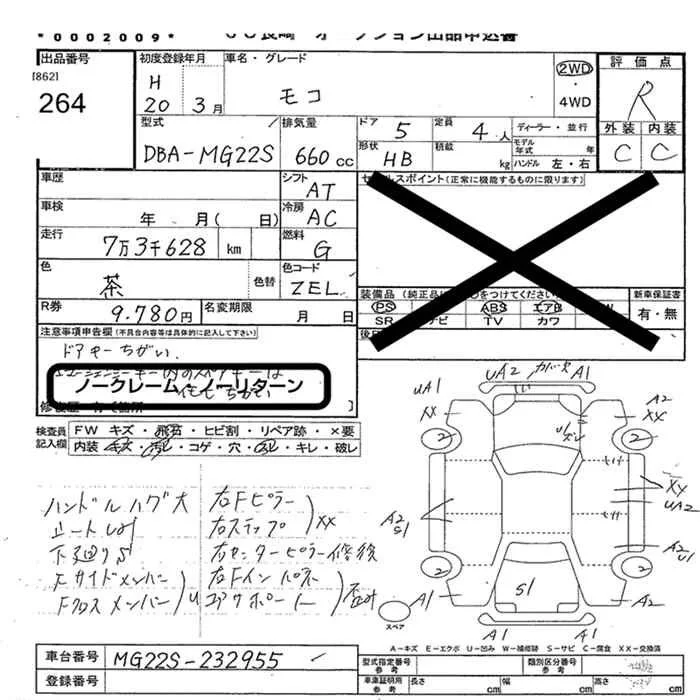 *0002009*
出品番号
[862]
264
初度登録年月
H
20 3月
車名・グレード
モコ
2WD
・
4WD
評価点
R
外装 内装
C C
型式
DBA-MG22S
排気量
660 cc
ドア 5
定員 4人
形状 HB
積載 kg
ディーラー・並行
モデル年式 年
ハンドル 左・右
車歴
シフト AT
車検 年 月( 日)
冷房 AC
走行 7万3千628 km
燃料 G
色 茶 色替
色コード ZEL
R券 9.780円
名変期限 月 日
(正常に機能するものに限ります)
装備品
PS ABS エアB
SR TV カワ
新車保証書
有・無
注意事項申告欄(不具合内容等は具体的に記入して下さい)
ドアキーちがい.
ノークレーム・ノーリターン
検査員記入欄
FW キズ・飛石・ヒビ割・リペア跡・×要
内装・キズ・汚レ・コゲ・穴・・キレ・破レ
ハンドルハグ大
シートし
下廻りS
Fサイドメンバー
Fクロスメンバー U
右Fピラー
右ステップ XX
右センターピラー修復
右Fインパネ
コアサポート
UA1 UA2 カバー欠 A1
XX A2
XX
2 2
XX
UA2
A2
S1
A2
U1
2 2
A1 S1 A2
A1 A1
スペア
A-キズ E-エクボ U-凹み W-補修跡 S-サビ C-腐食 XX-交換済
車台番号 MG22S-232955
登録番号
型式指定番号 参考
類別区分番号 参考
車庫証明用 参考
長さ cm 幅 cm 高さ cm